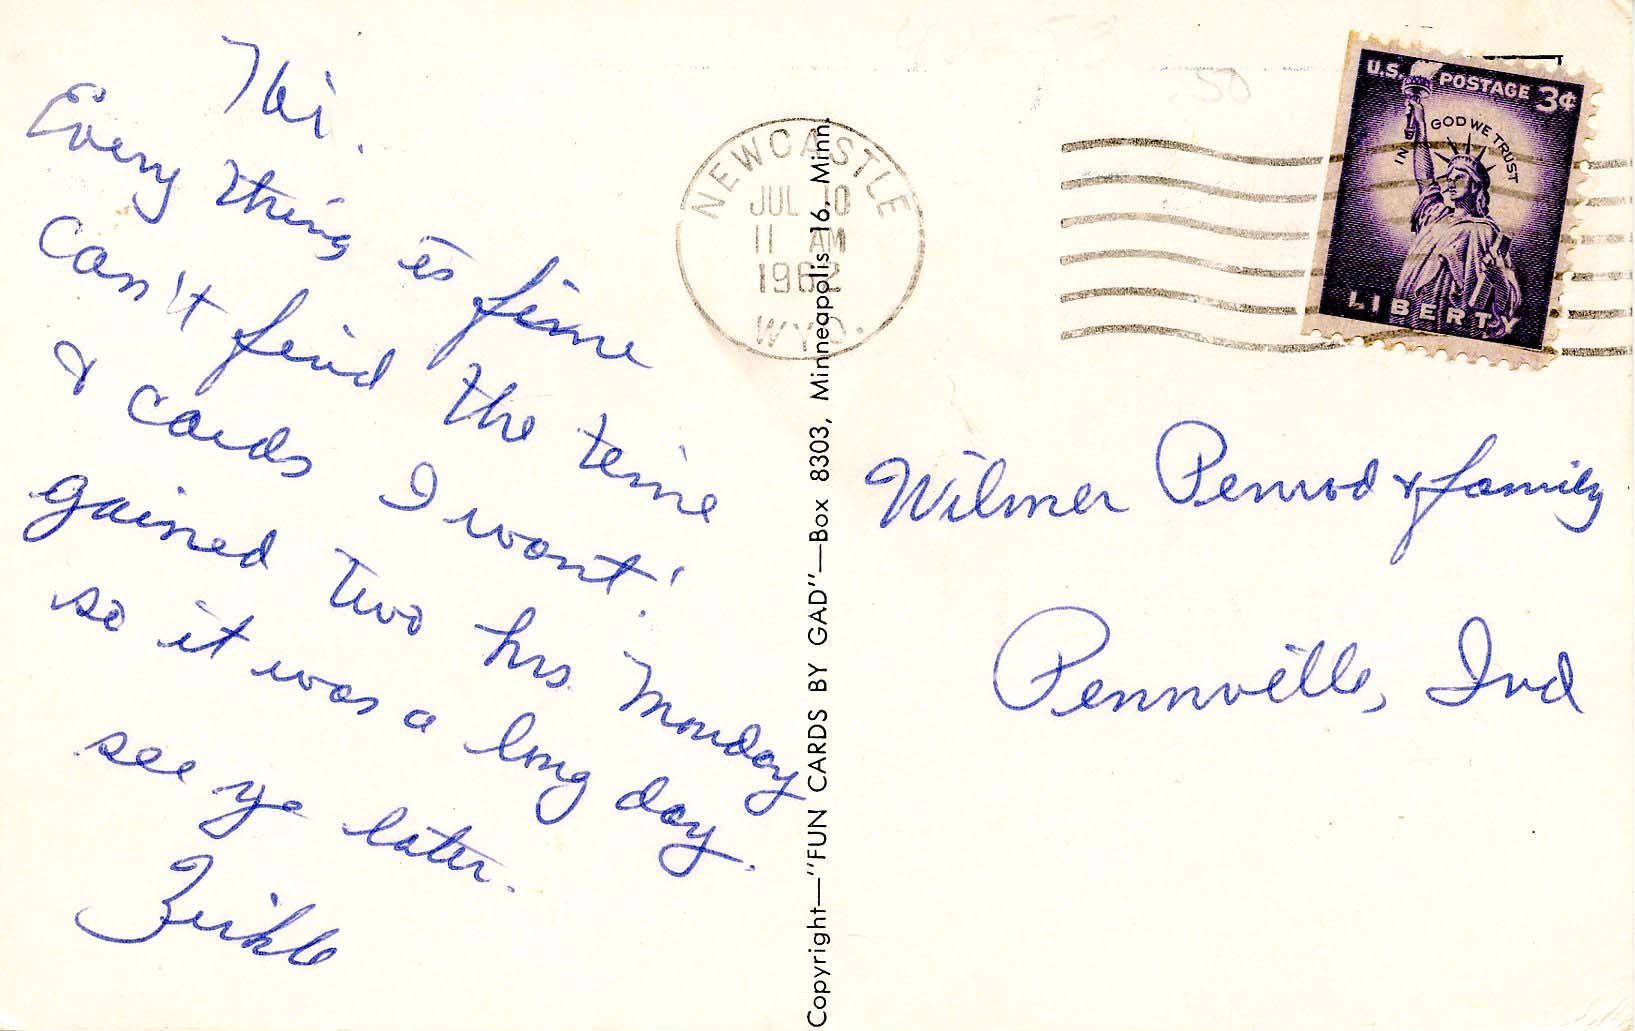 Hi.
Every thing is fine
can't find the time
& cards I want!
gained two hrs Monday
so it was a long day.
see ya later.
Copyright—"FUN CARDS BY GAD"—Box 8303, Minneapolis 16, Minn.
NEWCASTLE
JUL 10
11 AM
1962
WYO.
U.S. POSTAGE 3¢
IN GOD WE TRUST
LIBERTY
Wilmer Penrod & family
Pennville, Ind